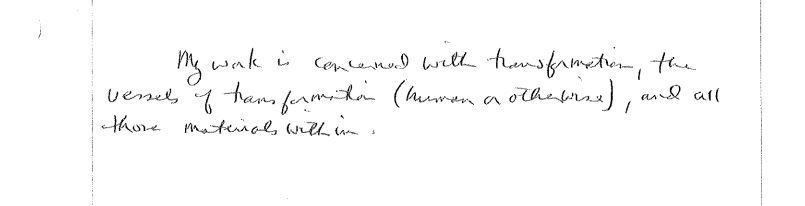 My work is concerned with transformation, the
vessels of transformation (human or otherwise), and all
those materials within.